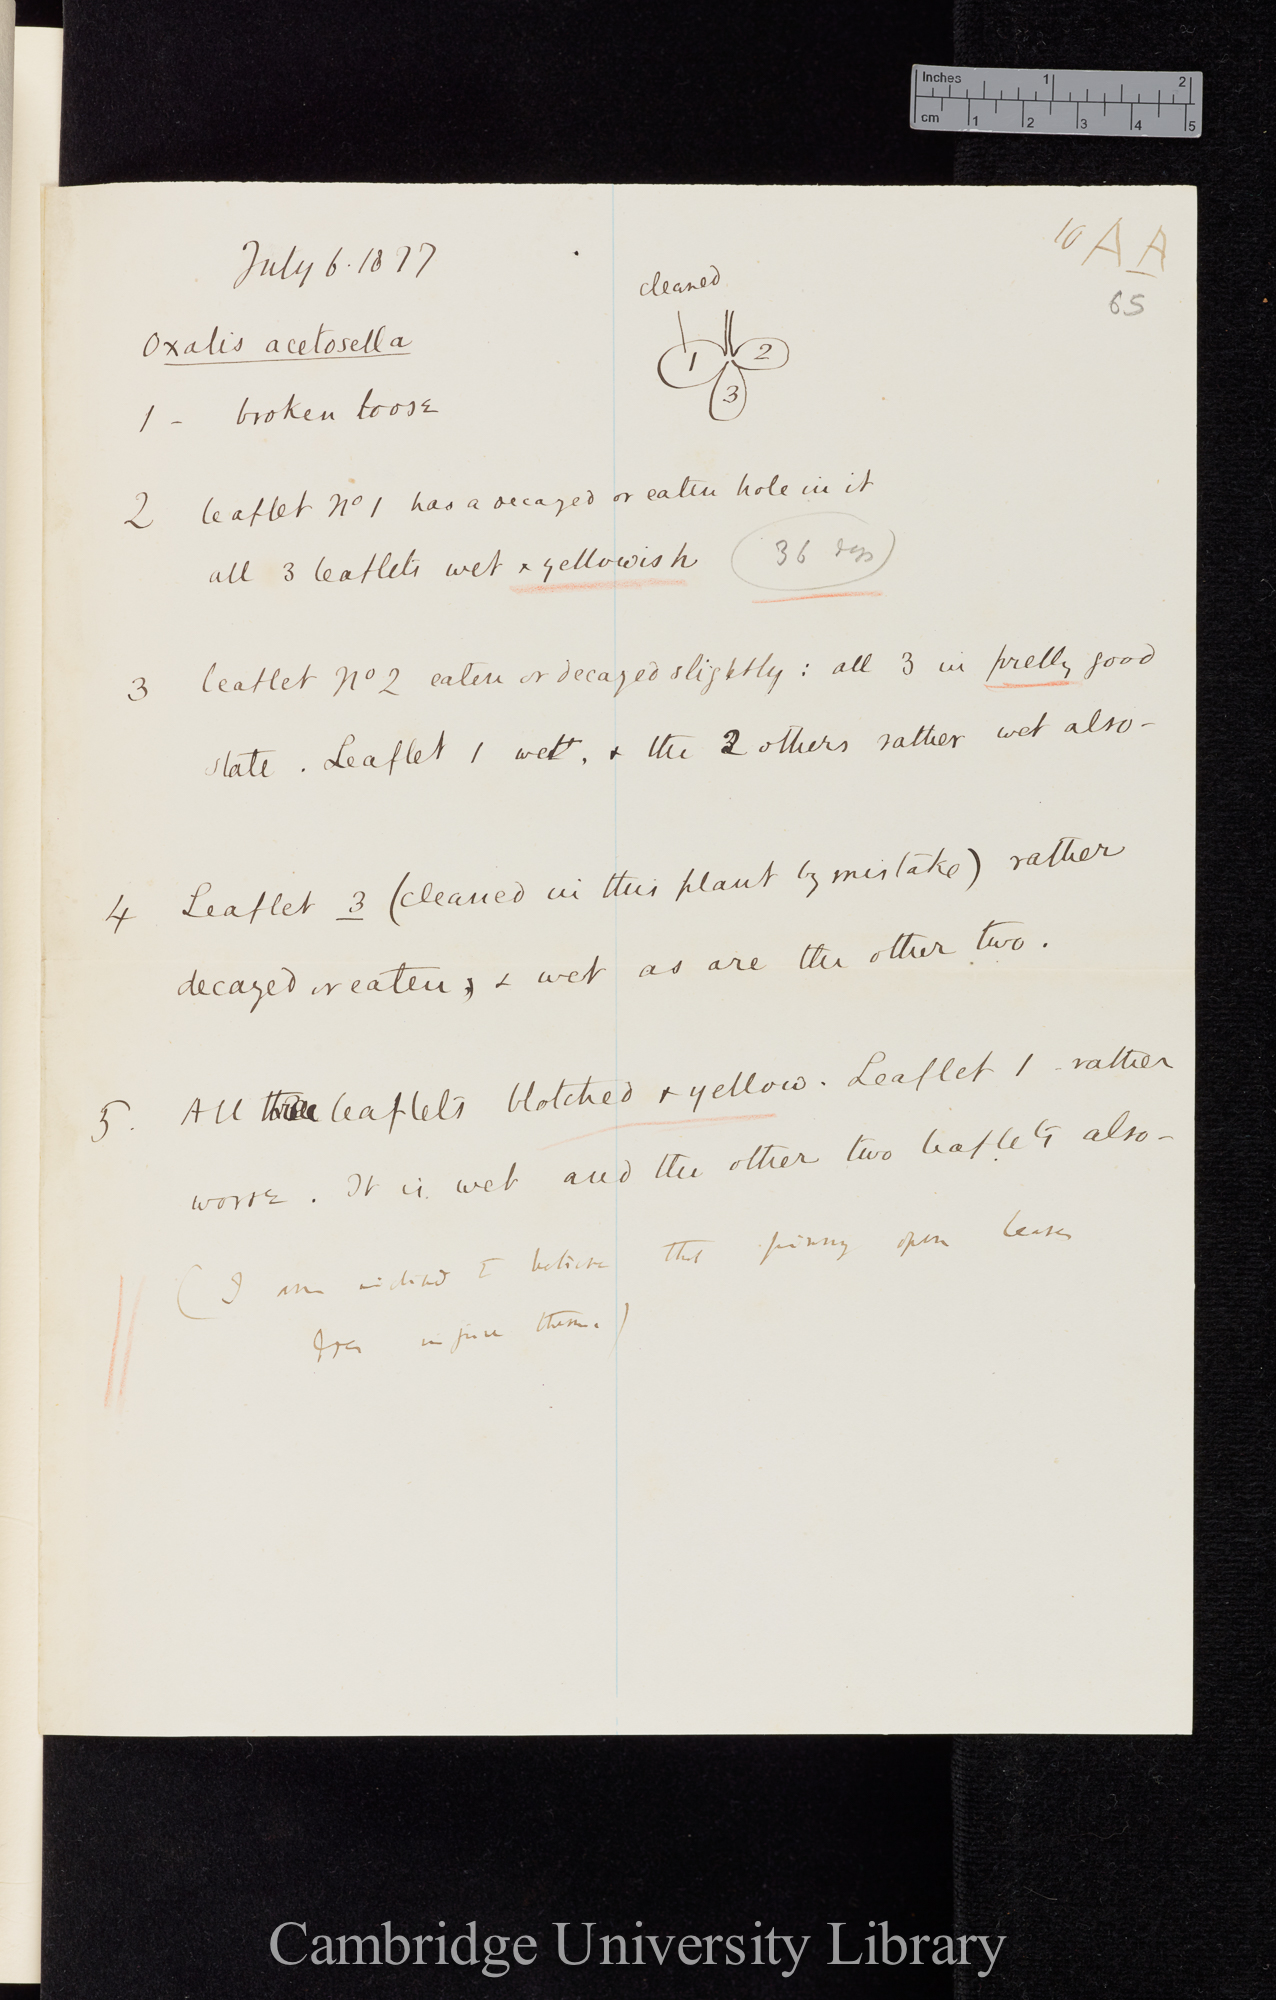 Inches 1 2
cm 1 2 3 4 5
10 A A
65
July 6. 1877
cleaned
1 2
3
Oxalis acetosella
1 - broken loose
2 leaflet No 1 has a decayed or eaten hole in it
all 3 leaflets wet & yellowish (36 days)
3 leaflet No 2 eaten or decayed slightly: all 3 in pretty good
state. Leaflet 1 wet, & the 2 others rather wet also-
4 Leaflet 3 (cleaned in this plant by mistake) rather
decayed or eaten, & wet as are the other two.
5. All three leaflets blotched & yellow. Leaflet 1 - rather
worse. It is wet and the other two leaflets also-
(I am inclined to believe that pinning open leaves
does injure them.)
Cambridge University Library